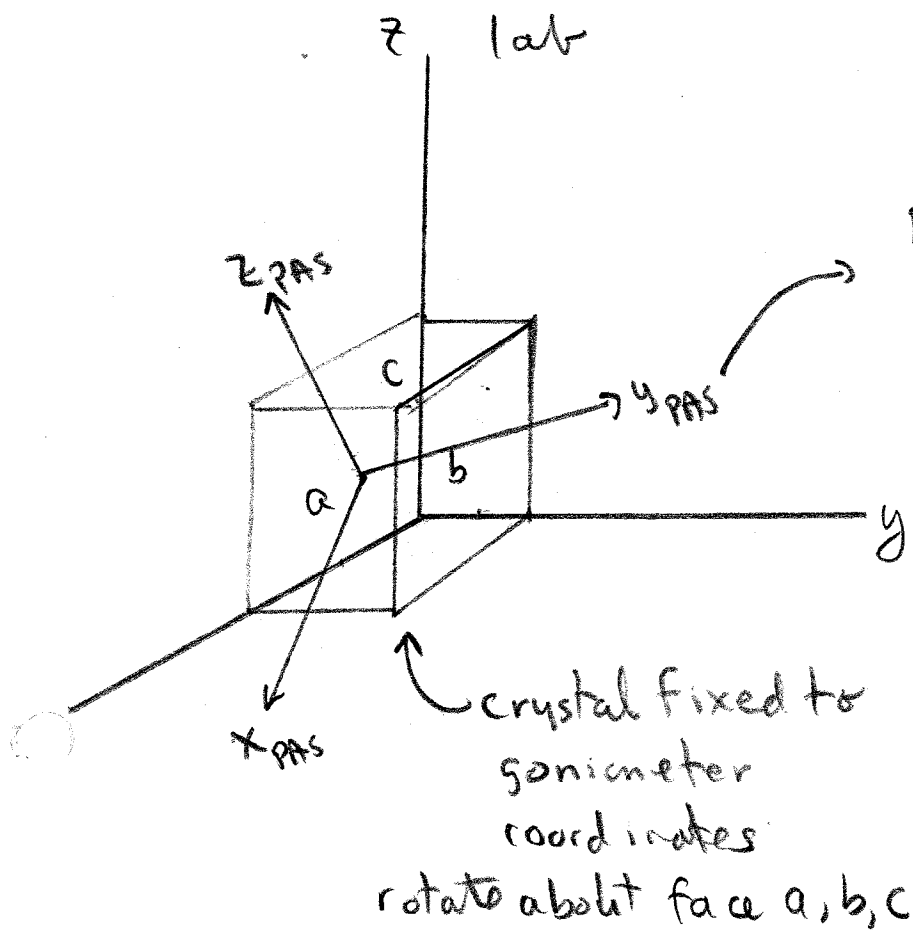 z lab
z PAS
c
y PAS
b
a
y
x PAS
crystal fixed to
goniometer
coordinates
rotate about face a, b, c